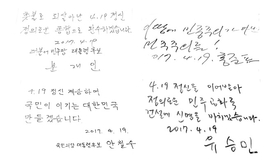 촛불로 되살아난 4.19 정신
정의로운 통합으로 완수하겠습니다
2017 4. 19
더불어민주당 대통령후보
문재인
이땅에 민주주의
민주주의를!
2017. 4. 19.
4.19 정신 계승하여
국민이 이기는 대한민국
만들겠습니다
2017. 4. 19.
국민의당 대통령후보 안철수
4.19 정신을 이어받아
정의로운 민주공화국
건설에 신명을 바치겠습니다.
2017. 4. 19
유승민